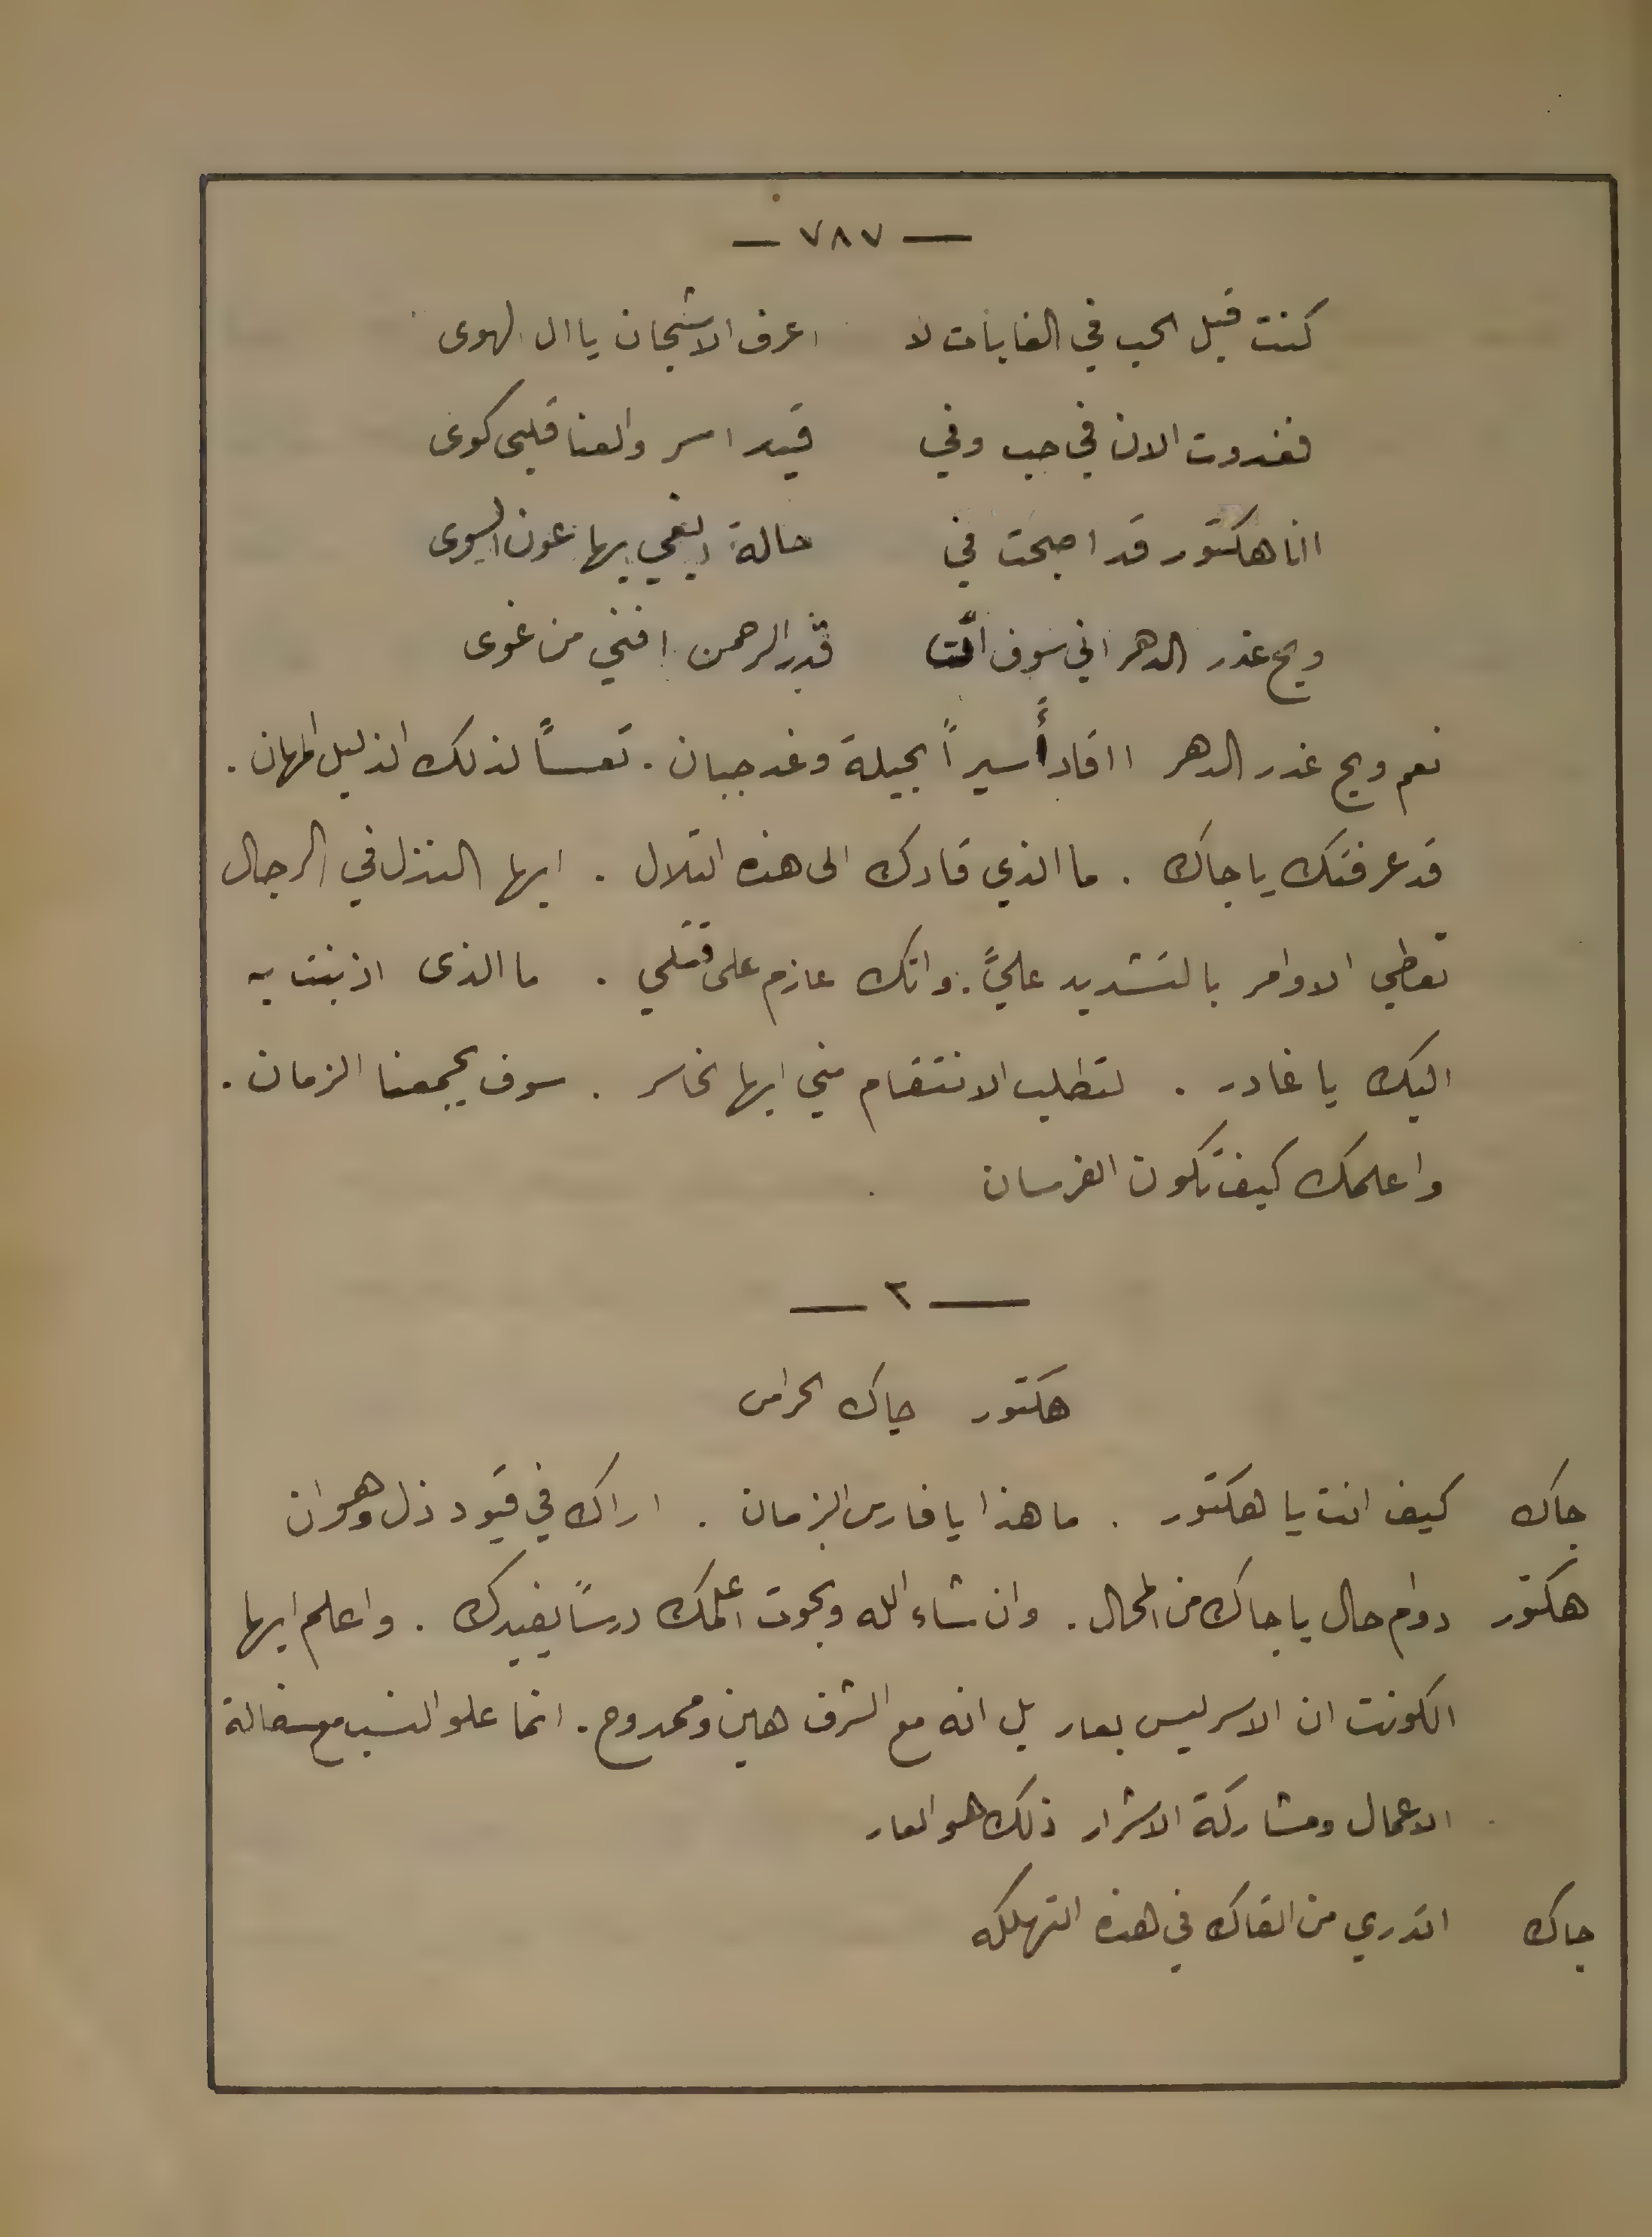 — ٧٨٧ —
كنت قبل الحب في الغابات لا اعرف الاشجان يا ال الهوى
فغدوت الان في حب وفي قيد اسر والعنا قلبي كوى
اانا هكتور قد اصبحت في حالة ابغي بها عون السوى
ويح غدر الدهر اني سوف قدر الرحمن افني من غوى
نعم ويح غدر الدهر ااقاد أسيراً بحيلة وغد جبان . تعساً لذلك الذليل المهان .
قد عرفتك يا جاك . ما الذي قادك الى هذه التلال . ايها النذل في الرجال
تعطي الاوامر بالتشديد عليَّ . وانك عازم على قتلي . ما الذى اذنبت به
اليك يا غادر . لتطلب الانتقام مني ايها الخاسر . سوف يجمعنا الزمان .
واعلمك كيف تكون الفرسان
— ٢ —
هكتور جاك الحراس
جاك كيف انت يا هكتور . ما هذا يا فارس الزمان . اراك في قيود ذل وهوان
هكتور دوام حال يا جاك من المحال . وان شاء الله ونجوت اعلمك درساً يفيدك . واعلم ايها
الكونت ان الاسر ليس بعار بل انه مع الشرف هين وممدوح . انما علو النسب مع سفالة
الاعمال ومشاركة الاشرار ذلك هو العار
جاك اتدري من القاك في هذه التهلكه